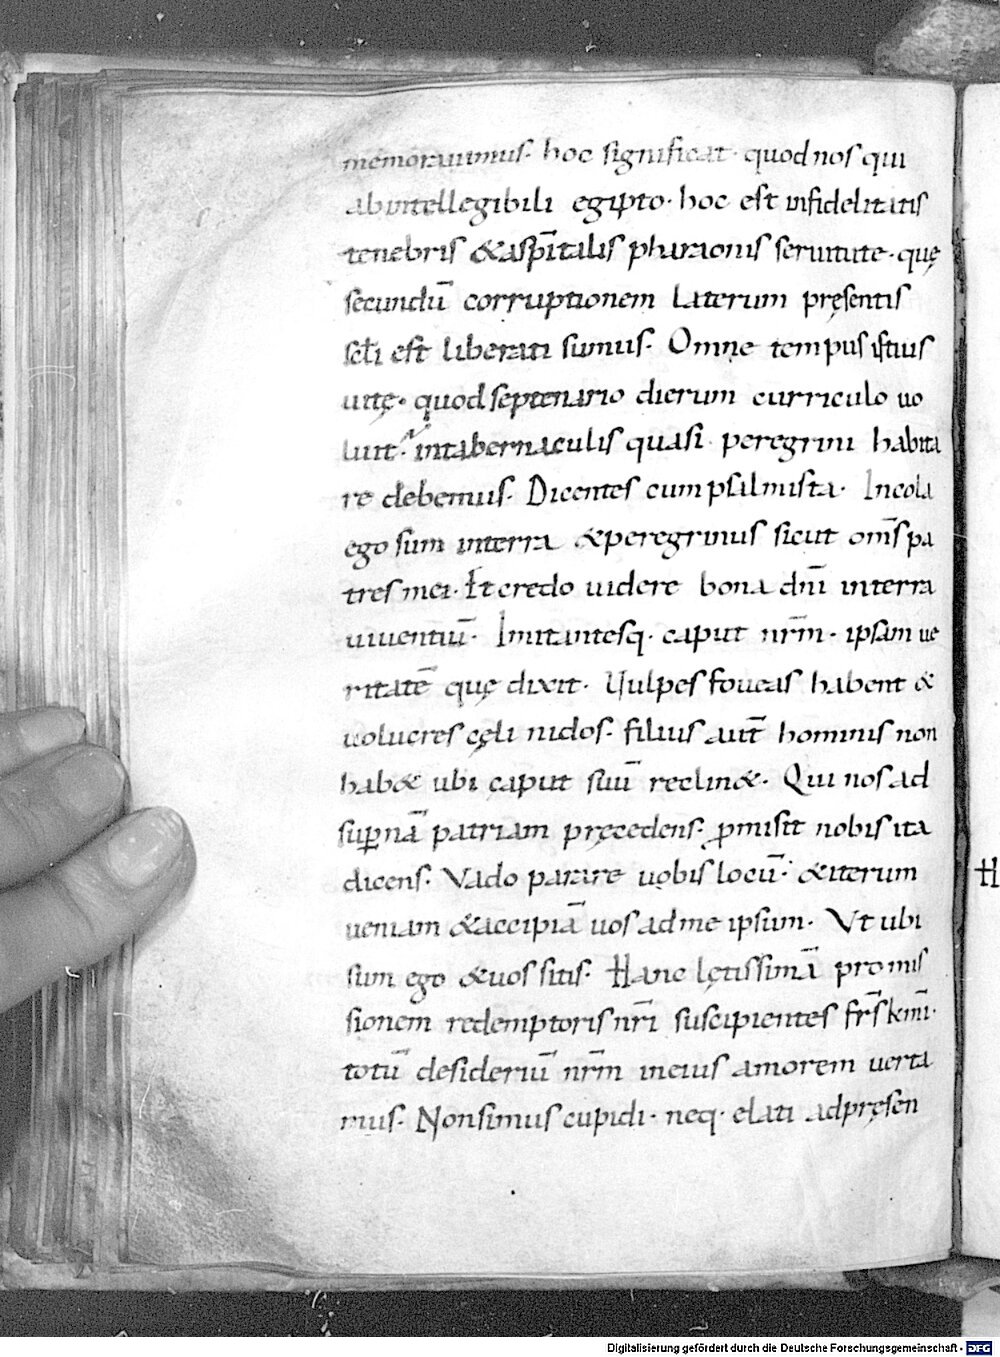 memorauimus· hoc significat· quod nos qui
ab intellegibili egipto· hoc est infidelitatis
tenebris & a spĩtalis pharaonis seruitute· quę
secundũ corruptionem laterum pręsentis
sc̄li est liberati sumus· Omne tempus istius
uitę· quod septenario dierum curriculo uo
luit· in tabernaculis quasi peregrini habita
re debemus· Dicentes cum psalmista· Incola
ego sum in terra & peregrinus sicut om̄s pa
tres mei· Et credo uidere bona dn̄i in terra
uiuentiũ· Imitantesq· caput nr̄m· ipsam ue
ritatē quę dixit· Vulpes foueas habent &
uolucres cęli nidos· filius aut̄ hominis non
hab& ubi caput suũ reclin&· Qui nos ad
suꝑnā patriam pręcedens· ꝓmisit nobis ita
dicens· Vado parare uobis locũ· & iterum
ueniam & accipiā uos ad me ipsum· Vt ubi
sum ego & uos sitis· Hanc lętissimā promis
sionem redemptoris nr̄i suscipientes fr̄s km̄i·
totũ desideriũ nr̄m in eius amorem uerta
mus· Non simus cupidi· neq· elati ad pręsen
H
Digitalisierung gefördert durch die Deutsche Forschungsgemeinschaft - DFG